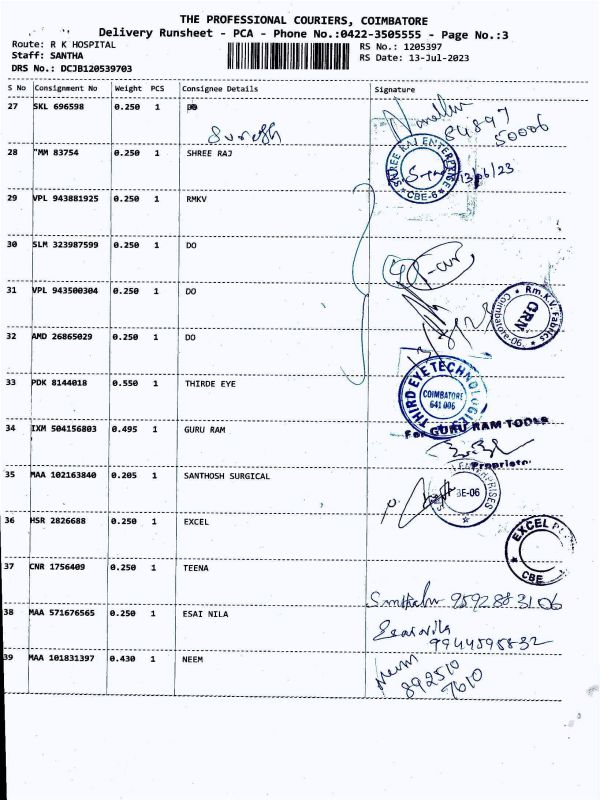 THE PROFESSIONAL COURIERS, COIMBATORE
Delivery Runsheet - PCA - Phone No.:0422-3505555 - Page No.:3
Route: R K HOSPITAL
Staff: SANTHA
DRS No.: DCJB120539703
RS No.: 1205397
RS Date: 13-Jul-2023
S No Consignment No Weight PCS Consignee Details Signature
27 SKL 696598 0.250 1
Suresh
84897
50006
28 "MM 83754 0.250 1 SHREE RAJ
SHREE RAJ ENTERPRISE
CBE-6
13/06/23
29 VPL 943881925 0.250 1 RMKV
30 SLM 323987599 0.250 1 DO
31 VPL 943500304 0.250 1 DO
Rm.K.V. Fabrics
GRN
Coimbatore-06
32 AMD 26865029 0.250 1 DO
33 PDK 8144018 0.550 1 THIRDE EYE
THIRD EYE TECHNOLOGIES
COIMBATORE
641 006
34 IXM 504156803 0.495 1 GURU RAM
For GURU RAM TOOLS
Proprietor
35 MAA 102163840 0.205 1 SANTHOSH SURGICAL
BE-06
36 HSR 2826688 0.250 1 EXCEL
EXCEL
CBE
37 CNR 1756409 0.250 1 TEENA
9592883106
38 MAA 571676565 0.250 1 ESAI NILA
Esainila
9944598832
39 MAA 101831397 0.430 1 NEEM
Neem
892510
7610